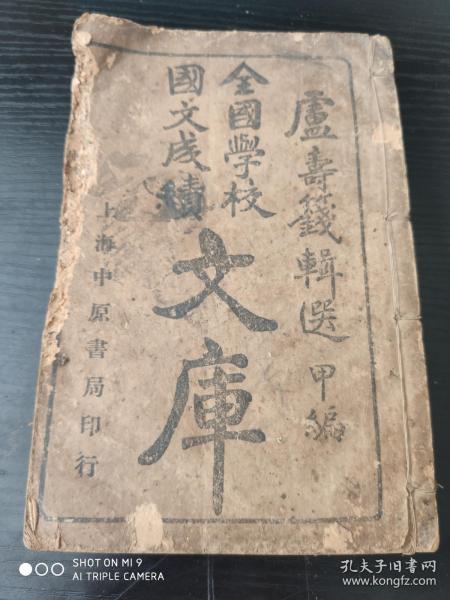 盧壽籛輯選 甲編
全國學校
國文成績
文庫
上海中原書局印行
SHOT ON MI 9
AI TRIPLE CAMERA
孔夫子旧書网
www.kongfz.com